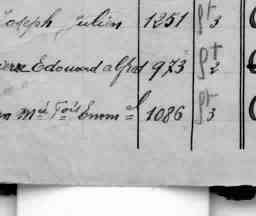 Joseph Julien 1251 gt 3
Edouard alfred 973 gt 2
Md Fois Emm el 1086 gt 3